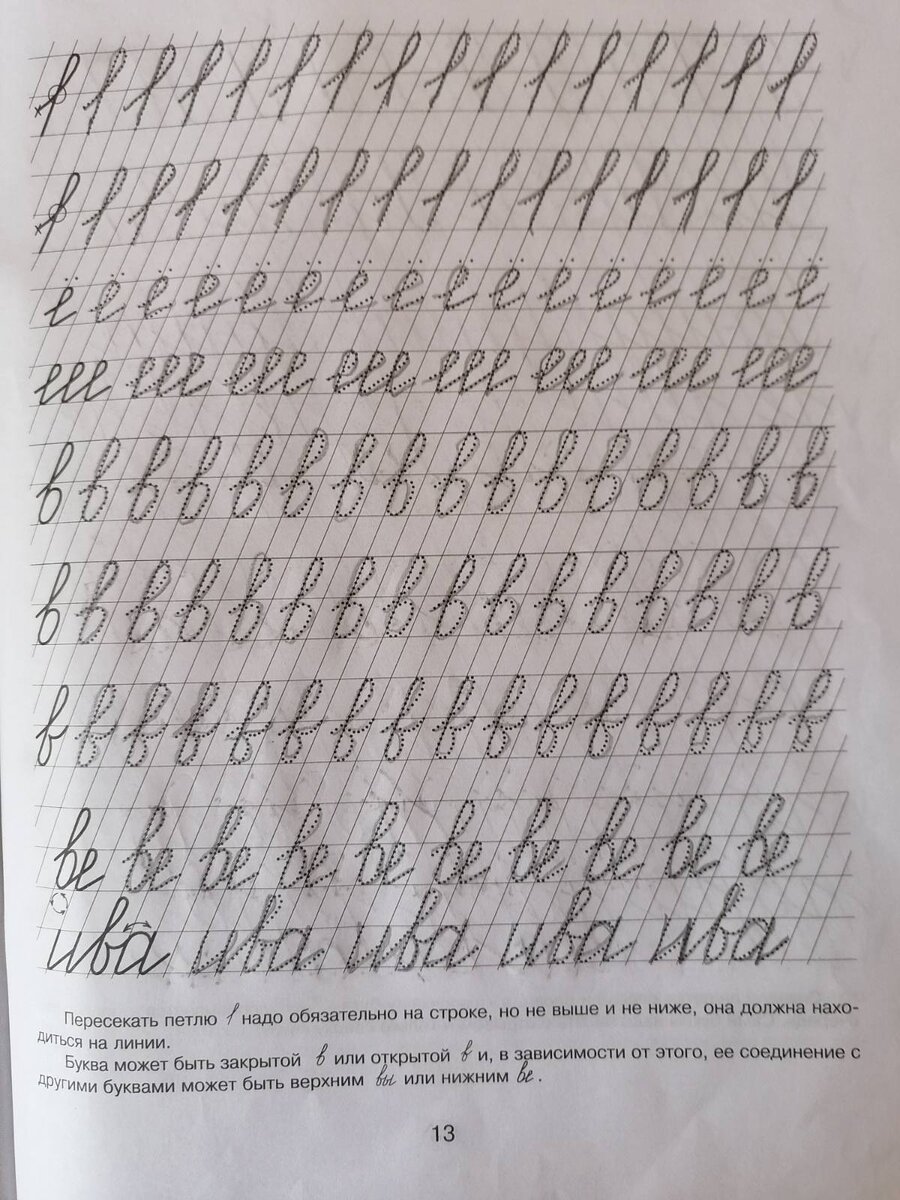 ё ё ё ё ё ё ё ё ё ё ё ё ё ё ё ё
еее еее еее еее еее еее еее еее
в в в в в в в в в в в в в в в в
в в в в в в в в в в в в в в в в
в в в в в в в в в в в в в в в в
ве ве ве ве ве ве ве ве ве ве
ива ива ива ива ива
Пересекать петлю надо обязательно на строке, но не выше и не ниже, она должна нахо-
диться на линии.
Буква может быть закрытой в или открытой в и, в зависимости от этого, ее соединение с
другими буквами может быть верхним вы или нижним ве.
13